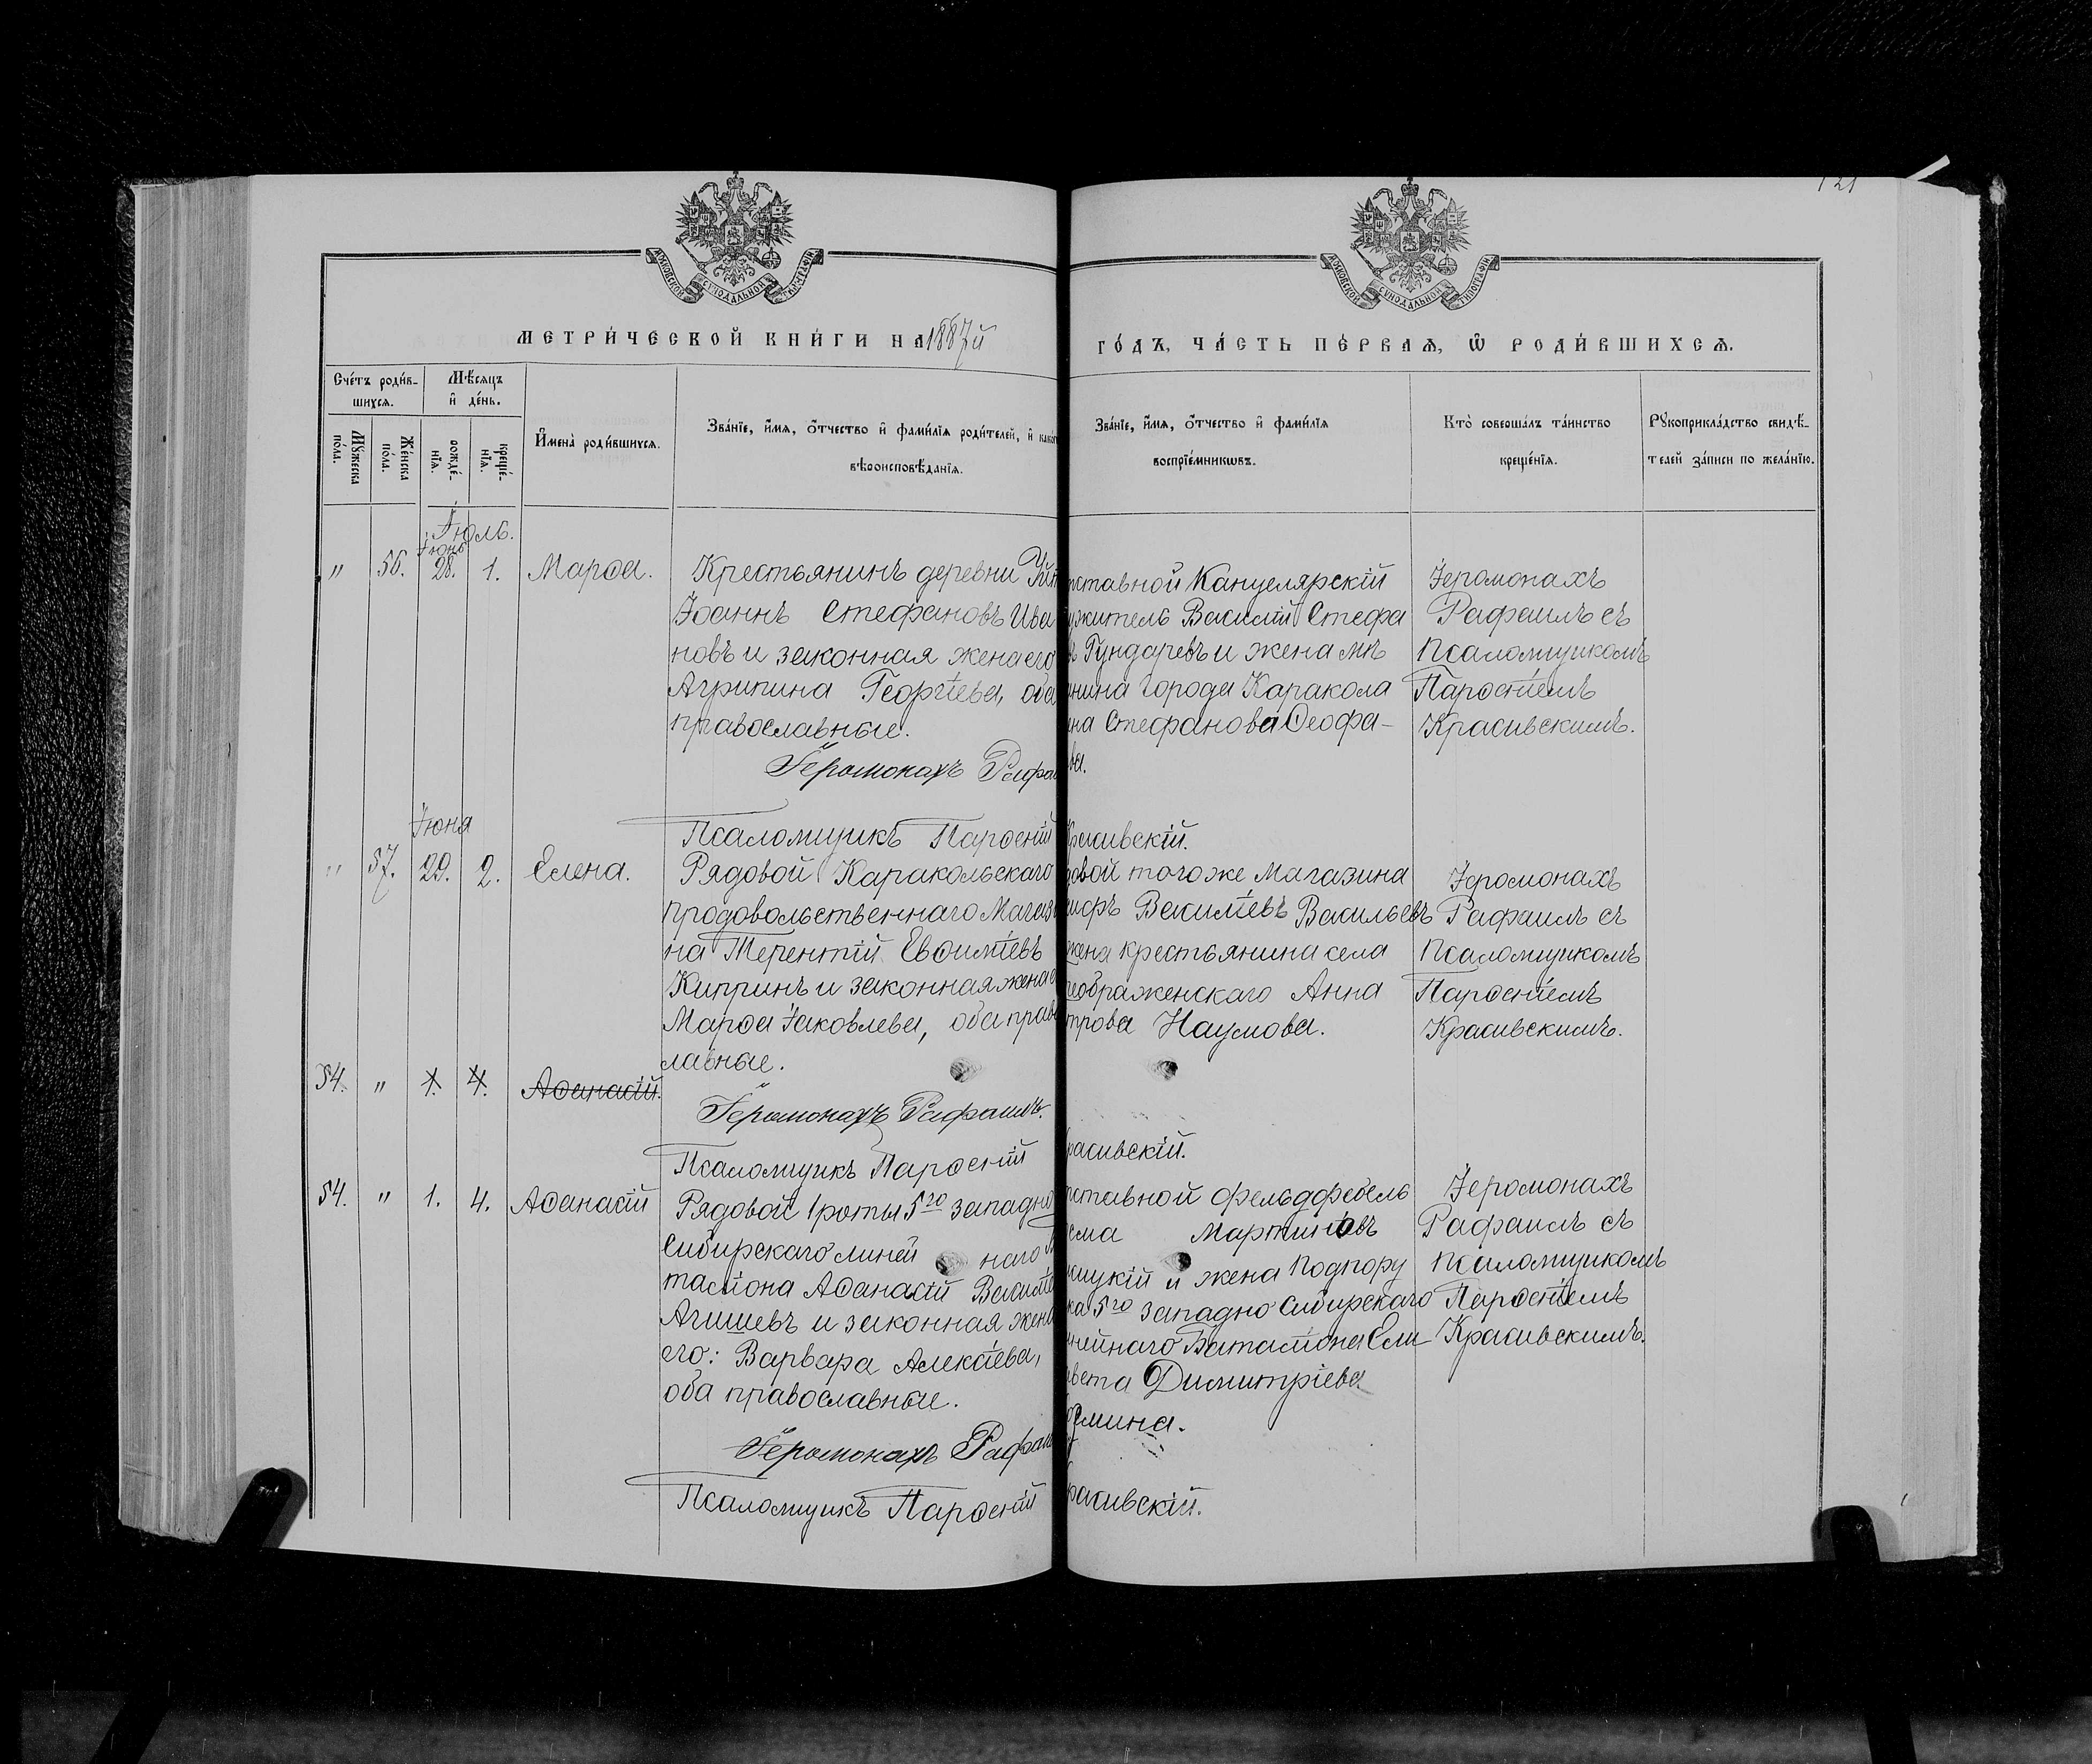 121
МОСКОВСКОЙ СѴНОДАЛЬНОЙ ТИПОГРАФІИ
МОСКОВСКОЙ СѴНОДАЛЬНОЙ ТИПОГРАФІИ
МЕТРИ́ЧЕСКОЙ КНИ́ГИ НА 1887й
ГО́ДЪ, ЧА́СТЬ ПЕ́РВАѦ, Ѡ РОДИ́ВШИХСѦ.
Сче́тъ роди́в-
шихсѧ.
Мѣ́сѧцъ
и҆ де́нь.
Мꙋ́жеска
по́ла.
Же́нска
по́ла.
рожде́-
нїѧ.
креще́-
нїѧ.
И҆мена̀ роди́вшихсѧ.
Зва́нїе, и҆́мѧ, ѻ҆́тчество и҆ фами́лїѧ роди́телей, и҆
вѣроисповѣ́данїѧ.
Зва́нїе, и҆́мѧ, ѻ҆́тчество и҆ фами́лїѧ
воспрїе́мникѡвъ.
Кто̀ соверша́лъ та́инство
креще́нїѧ.
Рꙋкоприкла́дство свидѣ́-
телей за́писи по жела́нїю.
Іюль.
Іюнь
" 56. 28. 1. Марѳа.
Крестьянинъ деревни
Іоаннъ Стефановъ Ива
новъ и законная жена его
Агрипина Георгіева, оба
православные.
Іеромонахъ Рафа
Псаломщикъ Парѳеній
ставной Канцелярскій
житель Василій Стефа
Гундаревъ и жена мѣ
нина города Каракола
на Стефанова Ѳеофа-
ва.
Красивскій.
Іеромонахъ
Рафаилъ съ
Псаломщикомъ
Парѳеніемъ
Красивскимъ.
Іюня
" 57. 29. 2. Елена.
Рядовой Каракольскаго
продовольственнаго Магази
на Терентій Евѳиміевъ
Киппинъ и законная жена е
Марѳа Іаковлева, оба право
лавные.
Іеромонахъ Рафаилъ.
Псаломщикъ Парѳеній
довой того же Магазина
сифъ Василіевъ Васильевъ
жена крестьянина села
еображенскаго Анна
трова Наумова.
расивскій.
Іеромонахъ
Рафаилъ съ
Псаломщикомъ
Парѳеніемъ
Красивскимъ.
54. " 1. 4. Аѳанасій.
54. " 1. 4. Аѳанасій
Рядовой 1 роты 5го западно
Сибирскаго линей наго
таліона Аѳанасій Василіе
Агишевъ и законная жена
его: Варвара Алексіева,
оба православные.
Іеромонахъ Рафаи
Псаломщикъ Парѳеній
ставной фельдфебель
сма Мартиновъ
ицкій и жена Подпору
ка 5го западно Сибирскаго
нейнаго Баталіона Ели
вета Димитріева
мина.
расивскій.
Іеромонахъ
Рафаилъ съ
Псаломщикомъ
Парѳеніемъ
Красивскимъ.